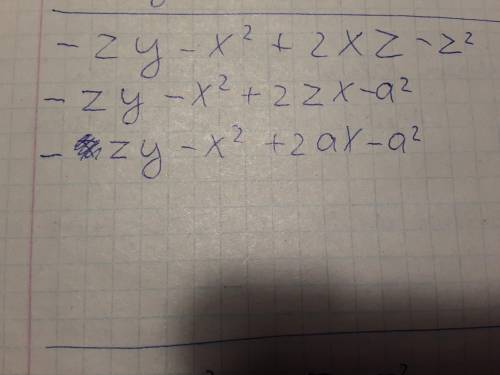 - zy - x² + 2xz - z²
- zy - x² + 2zx - a²
- zy - x² + 2ax - a²